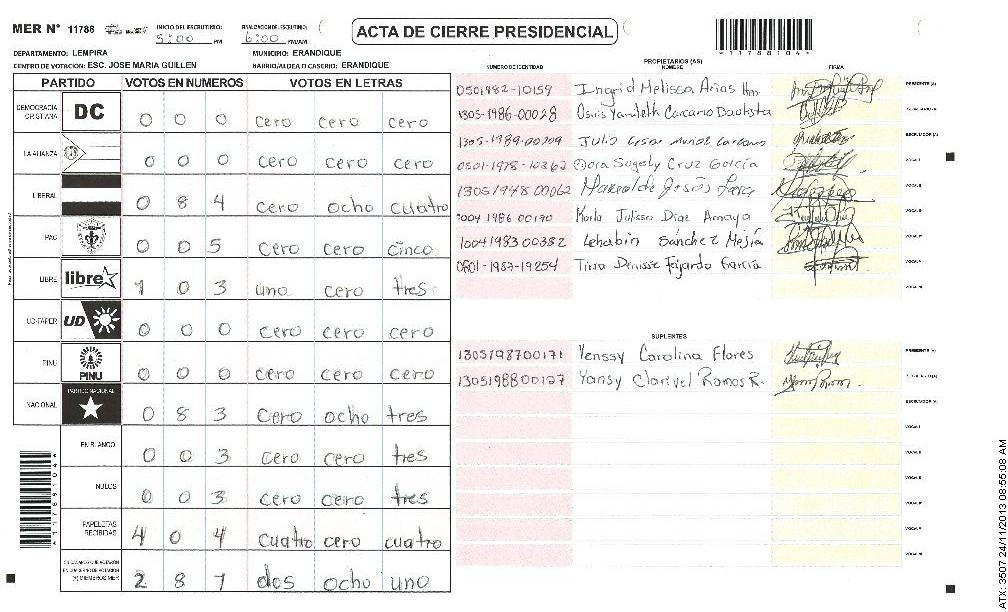 MER N° 11786 INICIO DEL ESCRUTINIO: 5:00 PM FINALIZACION DEL ESCRUTINIO: 6:00 PM/AM ACTA DE CIERRE PRESIDENCIAL
DEPARTAMENTO: LEMPIRA MUNICIPIO: ERANDIQUE
CENTRO DE VOTACION: ESC. JOSE MARIA GUILLEN BARRIO/ALDEA O CASERIO: ERANDIQUE
PARTIDO VOTOS EN NUMEROS VOTOS EN LETRAS
DEMOCRACIA CRISTIANA DC 0 0 0 cero cero cero
LA ALIANZA 0 0 0 cero cero cero
LIBERAL 0 8 4 cero ocho cuatro
PAC 0 0 5 cero cero cinco
LIBRE libre 1 0 3 uno cero tres
UD-FAPER UD 0 0 0 cero cero cero
PINU PINU 0 0 0 cero cero cero
NACIONAL PARTIDO NACIONAL 0 8 3 cero ocho tres
EN BLANCO 0 0 3 cero cero tres
NULOS 0 0 3 cero cero tres
PAPELETAS RECIBIDAS 4 0 4 cuatro cero cuatro
2 8 1 dos ocho uno
*11786104*
PROPIETARIOS (AS)
NUMERO DE IDENTIDAD NOMBRE FIRMA
0501982-10159 Ingrid Melissa Arias Hm PRESIDENTE (A)
1305-1986-00028 Osiris Yamileth Carcamo Bautista SECRETARIO (A)
1305-1989-00209 Julio Cesar Muñoz Carcamo ESCRUTADOR (A)
0501-1978-10362 Dora Sugely Cruz García VOCAL I
1305 1948 00062 de Jesús VOCAL II
1004 1986 00170 Karla Julissa Diaz Amaya VOCAL III
1004 1983 00382 Lehabin Sánchez Mejía VOCAL IV
0801-1987-19254 Tirsa Denisse Fajardo García VOCAL V
VOCAL VI
SUPLENTES
1305198700171 Yenssy Carolina Flores PRESIDENTE (A)
1305198800127 Yansy Clarivel Ramos R. SECRETARIO (A)
ESCRUTADOR (A)
VOCAL I
VOCAL II
VOCAL III
VOCAL IV
VOCAL V
VOCAL VI
*11786104*
ATX: 3507 24/11/2013 08:55:08 AM